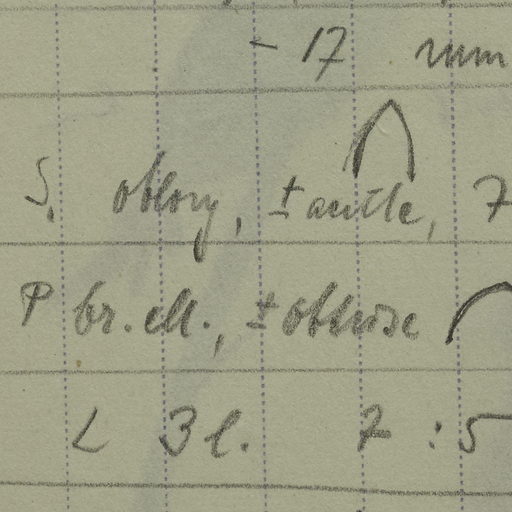 - 17 mm
S. oblong, ± acute, 7
P br. ell., ± obtuse
L 3 l. 7 : 5